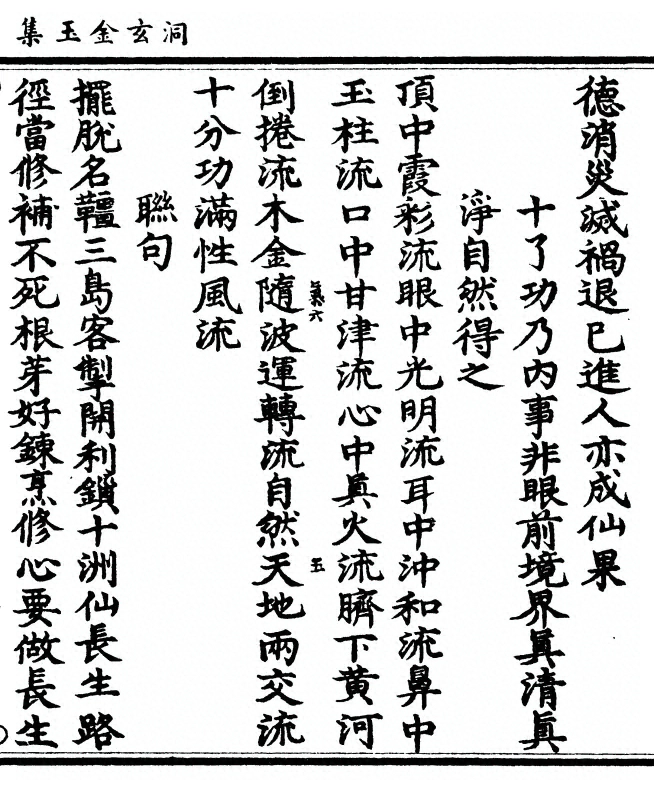 洞玄金玉集
德消災滅禍退已進人亦成仙果
十了功乃內事非眼前境界眞清眞
淨自然得之
頂中霞彩流眼中光明流耳中沖和流鼻中
玉柱流口中甘津流心中眞火流臍下黃河
倒捲流木金隨波運轉流自然天地兩交流
十分功滿性風流
聯句
擺脫名韁三島客掣開利鎖十洲仙長生路
徑當修補不死根芽好鍊烹修心要做長生